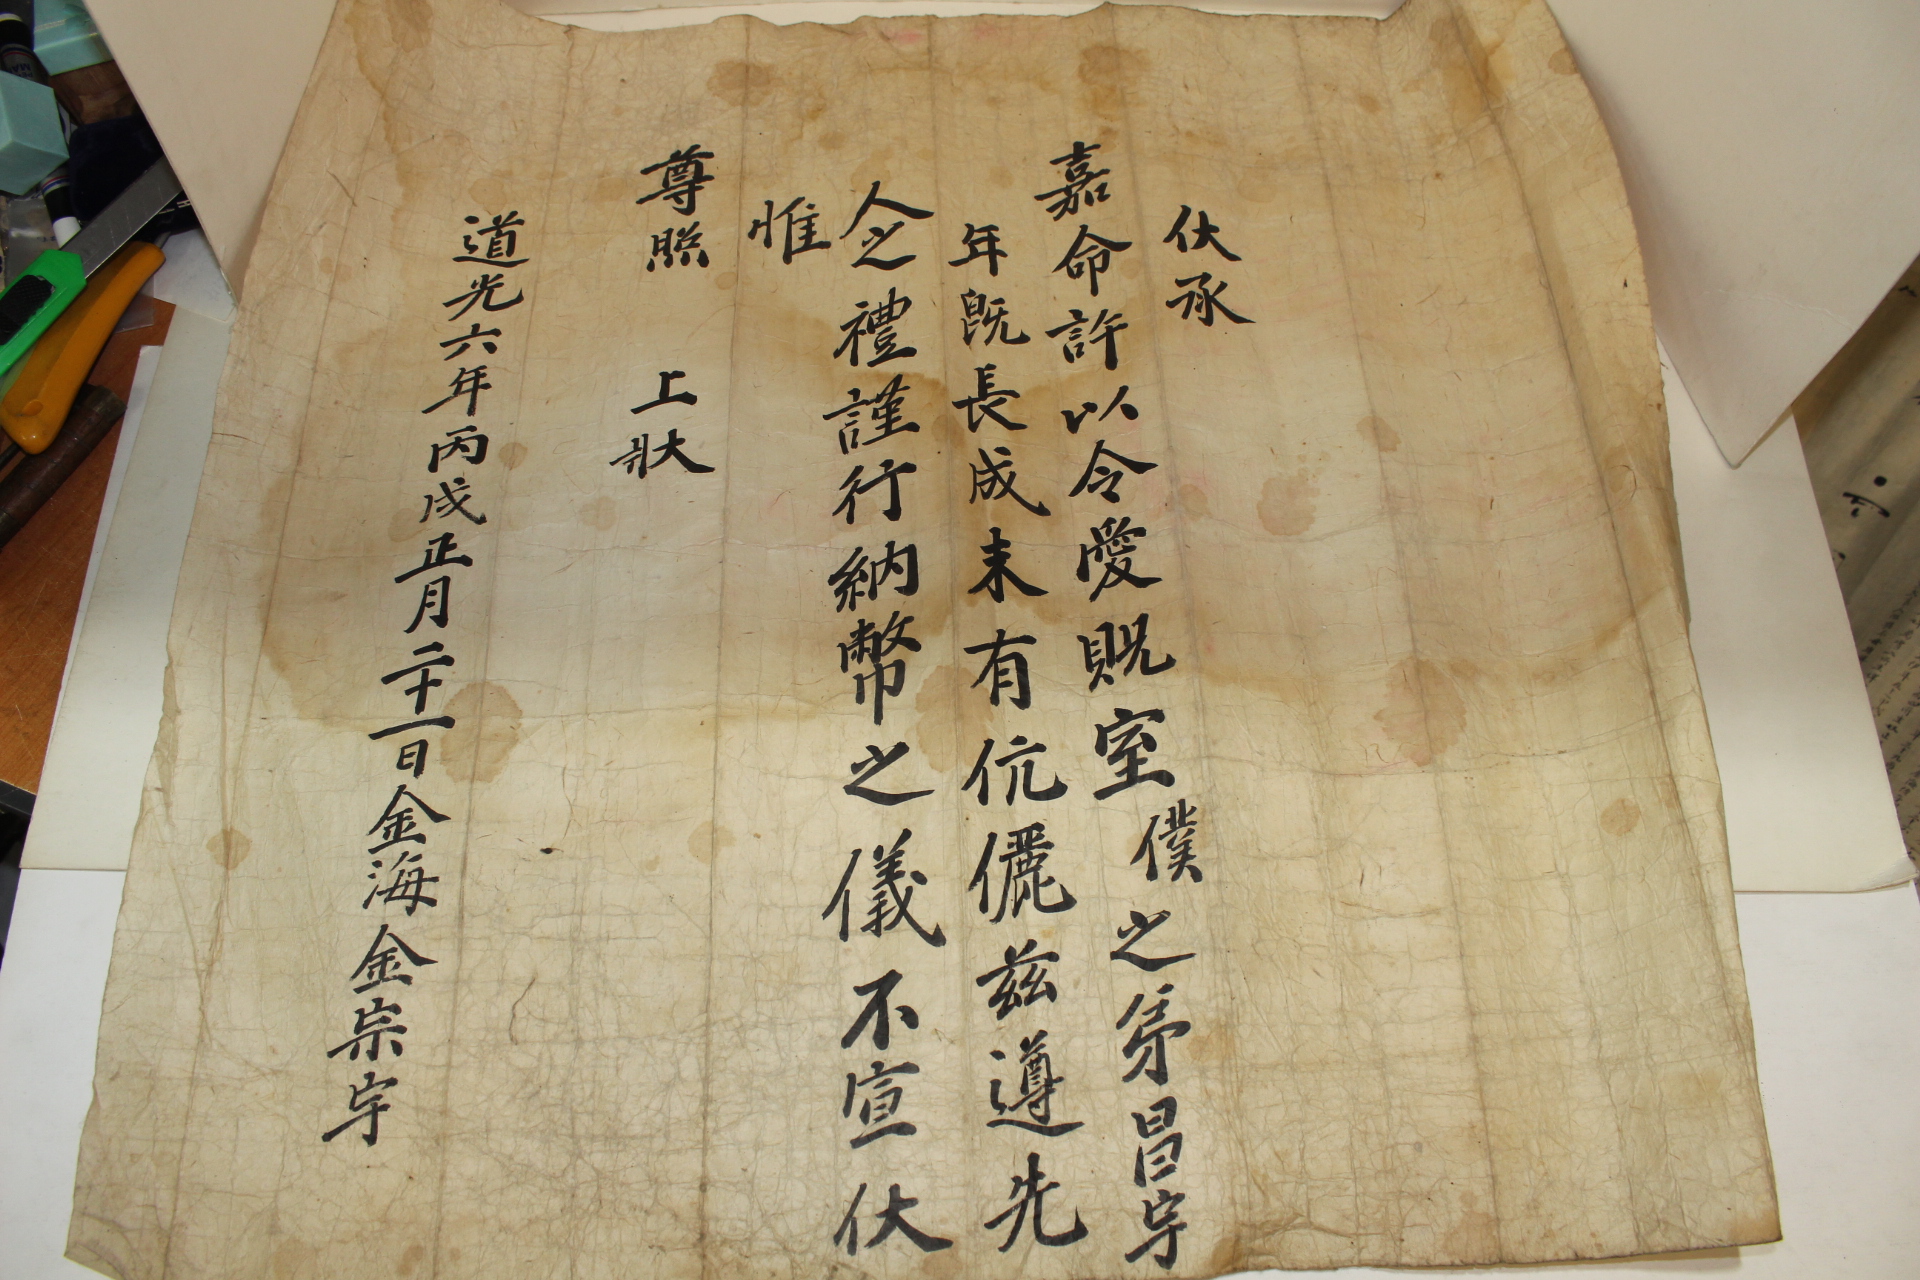 伏承
嘉命許以令愛貺室僕之弟昌宇
年旣長成未有伉儷茲遵先
人之禮謹行納幣之儀不宣伏
惟
尊照 上狀
道光六年丙戌正月二十一日金海金宗宇